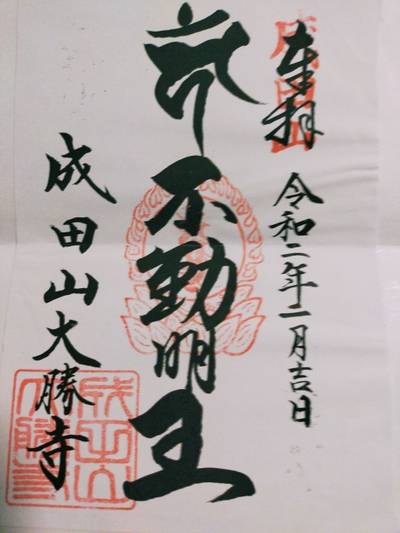 奉拝
令和二年二月吉日
不動明王
成田山大勝寺